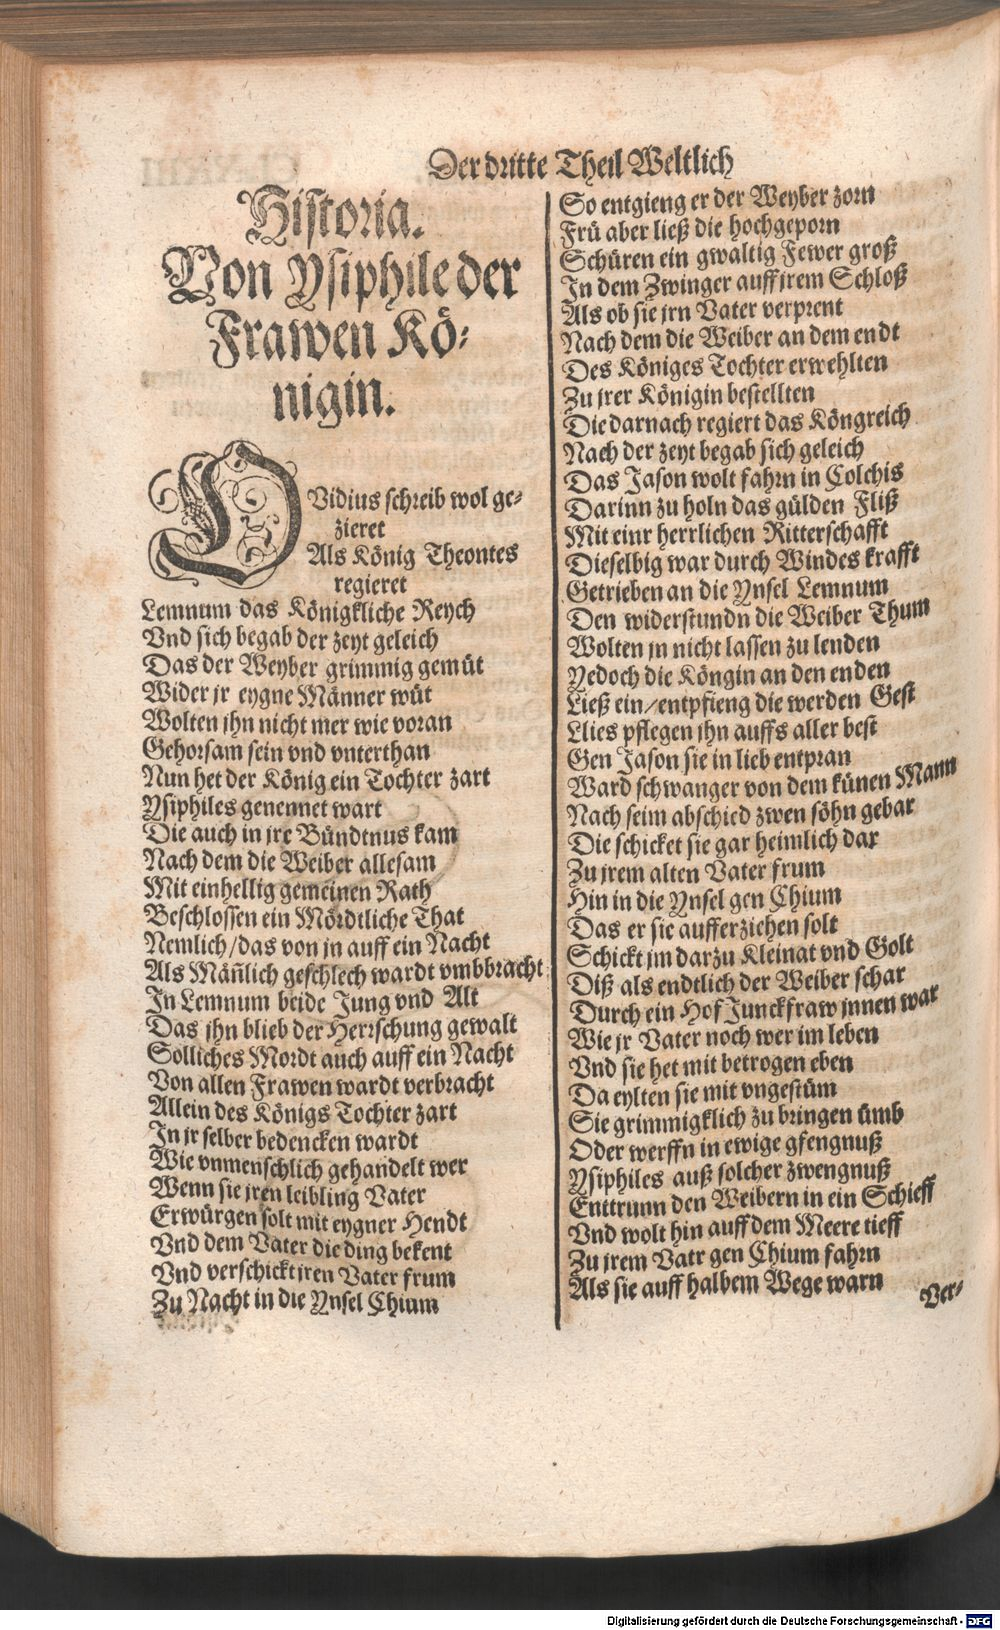 Der dritte Theil Weltlich
Historia.
Von Ysiphile der
Frawen Kö-
nigin.
OVidius schreib wol ge-
zieret
Als König Theontes
regieret
Lemnum das Königkliche Reych
Vnd sich begab der zeyt geleich
Das der Weyber grimmig gemüt
Wider jr eygne Männer wüt
Wolten jhn nicht mer wie voran
Gehorsam sein vnd vnterthan
Nun het der König ein Tochter zart
Ysiphiles genennet wart
Die auch in jre Bündtnus kam
Nach dem die Weiber allesam
Mit einhellig gemeinen Rath
Beschlossen ein Mördtliche That
Nemlich/das von jn auff ein Nacht
Als Mäñlich geschlech wardt vmbbracht
In Lemnum beide Jung vnd Alt
Das jhn blieb der Herrschung gewalt
Solliches Mordt auch auff ein Nacht
Von allen Frawen wardt verbracht
Allein des Königs Tochter zart
In jr selber bedencken wardt
Wie vnmenschlich gehandelt wer
Wenn sie jren leibling Vater
Erwürgen solt mit eygner Hendt
Vnd dem Vater die ding bekent
Vnd verschickt jren Vater frum
Zu Nacht in die Ynsel Chium
So entgieng er der Weyber zorn
Frü aber ließ die hochgeporn
Schüren ein gwaltig Fewer groß
In dem Zwinger auff jrem Schloß
Als ob sie jrn Vater verprent
Nach dem die Weiber an dem endt
Des Königes Tochter erwehlten
Zu jrer Königin bestellten
Die darnach regiert das Köngreich
Nach der zeyt begab sich geleich
Das Jason wolt fahrn in Colchis
Darinn zu holn das gülden Fliß
Mit einr herrlichen Ritterschafft
Dieselbig war durch Windes krafft
Getrieben an die Ynsel Lemnum
Den widerstundn die Weiber Thum
Wolten jn nicht lassen zu lenden
Yedoch die Köngin an den enden
Ließ ein/entpfieng die werden Gest
Llies pflegen jhn auffs aller best
Gen Jason sie in lieb entpran
Ward schwanger von dem künen Mann
Nach seim abschied zwen söhn gebar
Die schicket sie gar heimlich dar
Zu jrem alten Vater frum
Hin in die Ynsel gen Chium
Das er sie aufferziehen solt
Schickt jm darzu Kleinat vnd Golt
Diß als endtlich der Weiber schar
Durch ein Hof Junckfraw jnnen war
Wie jr Vater noch wer im leben
Vnd sie het mit betrogen eben
Da eylten sie mit vngestüm
Sie grimmigklich zu bringen ümb
Oder werffn in ewige gfengnuß
Ysiphiles auß solcher zwengnuß
Enitrunn den Weibern in ein Schieff
Vnd wolt hin auff dem Meere tieff
Zu jrem Vatr gen Chium fahrn
Als sie auff halbem Wege warn
Ver-
Digitalisierung gefördert durch die Deutsche Forschungsgemeinschaft - DFG